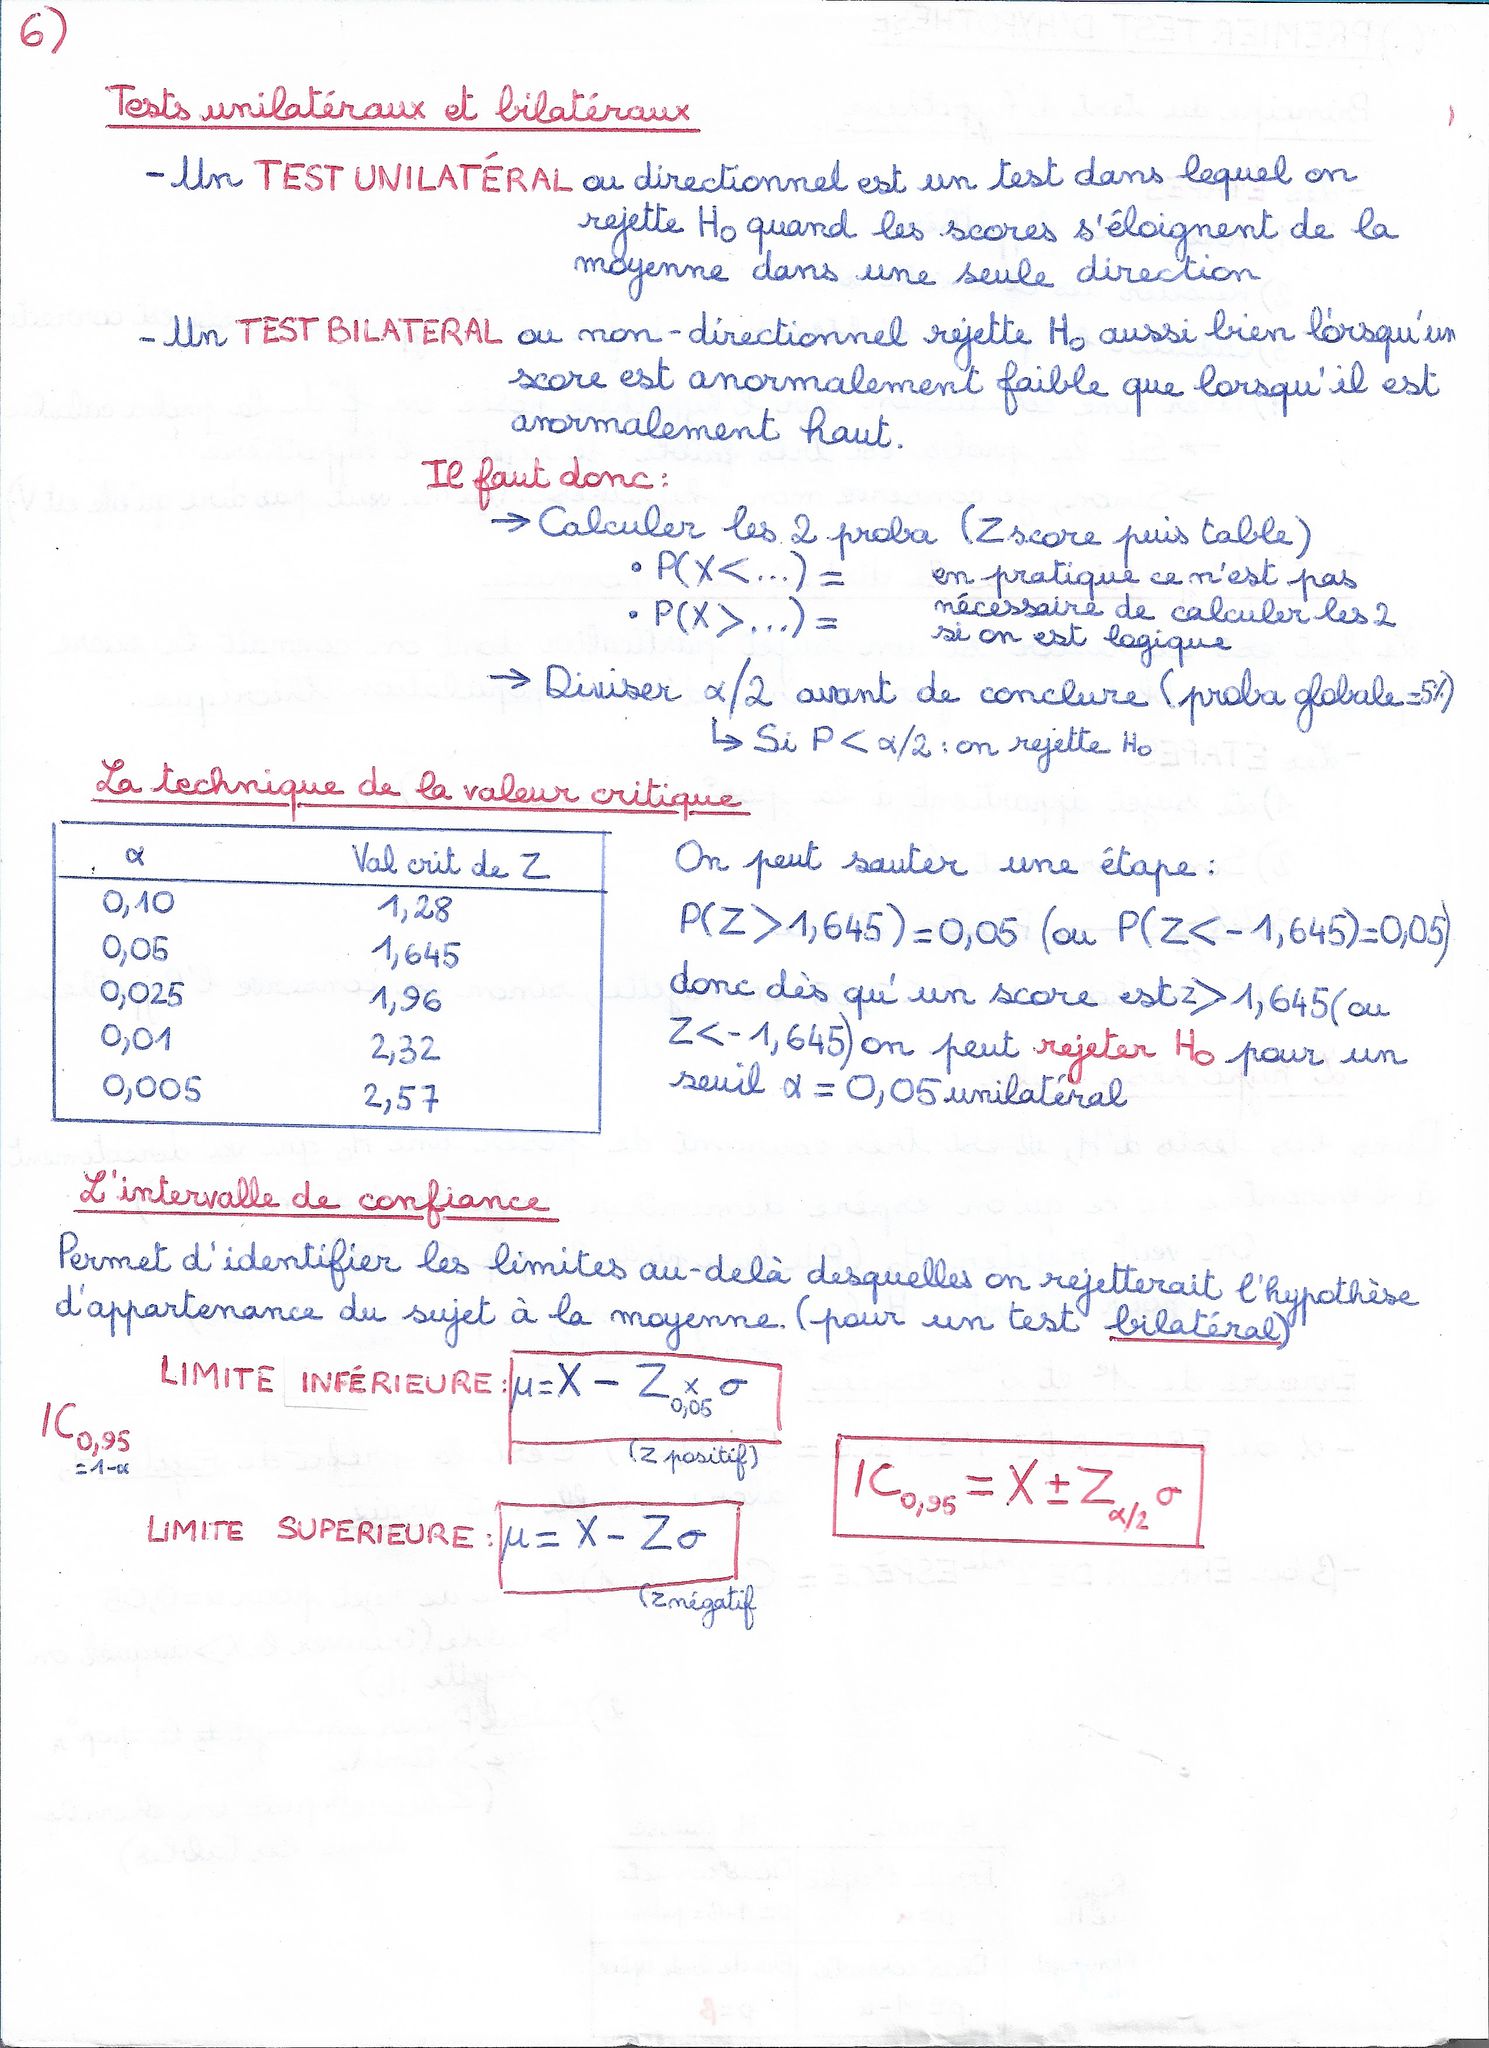 6)
Tests unilatéraux et bilatéraux
- Un TEST UNILATÉRAL ou directionnel est un test dans lequel on
rejette H₀ quand les scores s'éloignent de la
moyenne dans une seule direction
- Un TEST BILATERAL ou non-directionnel rejette H₀ aussi bien lorsqu'un
score est anormalement faible que lorsqu'il est
anormalement haut.
Il faut donc :
→ Calculer les 2 proba (Z score puis table)
• P(X<...) = en pratique ce n'est pas
• P(X>...) = nécessaire de calculer les 2
si on est logique
→ Diviser α/2 avant de conclure (proba globale=5%)
↳ Si P < α/2 : on rejette H₀
La technique de la valeur critique
α Val crit de Z
0,10 1,28
0,05 1,645
0,025 1,96
0,01 2,32
0,005 2,57
On peut sauter une étape :
P(Z>1,645)=0,05 (ou P(Z<-1,645)=0,05)
donc dès qu'un score est z>1,645 (ou
Z<-1,645) on peut rejeter H₀ pour un
seuil α = 0,05 unilatéral
L'intervalle de confiance
Permet d'identifier les limites au-delà desquelles on rejetterait l'hypothèse
d'appartenance du sujet à la moyenne. (pour un test bilatéral)
LIMITE INFÉRIEURE : μ = X - Z0,05 × σ
(z positif)
IC0,95
= 1-α
IC0,95 = X ± Zα/2 σ
LIMITE SUPERIEURE : μ = X - Zσ
(z négatif